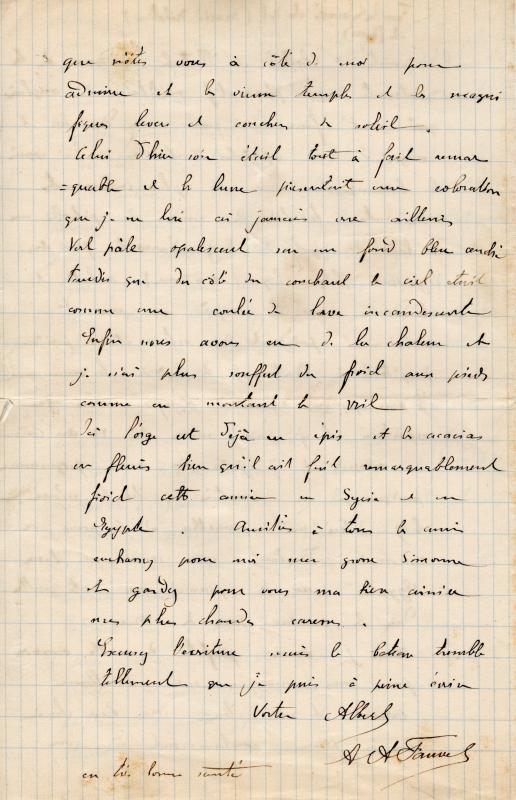 que n'êtes vous à côté de moi pour
admirer et les vieux temples et les magni
fiques levers et couchers de soleil.
Celui d'hier soir était tout à fait remar
=quable et la lune présentait une coloration
que je ne lui ai jamais vue ailleurs
Vert pâle opalescent sur un fond bleu cendré
tandis que du côté du couchant le ciel était
comme une coulée de lave incandescente
Enfin nous avons eu de la chaleur et
je n'ai plus souffert du froid aux pieds
comme en montant le Nil
Ici l'orge est déjà en épis et les acacias
en fleurs bien qu'il ait fait remarquablement
froid cette année en Syrie et en
Egypte. Amitiés à tous les amis
embrassez pour moi ma grosse Simonne
et gardez pour vous ma bien aimée
mes plus chaudes caresses.
Excusez l'écriture mais le bateau tremble
tellement que je puis à peine écrire
Votre Albert
A A Fauvel
en très bonne santé